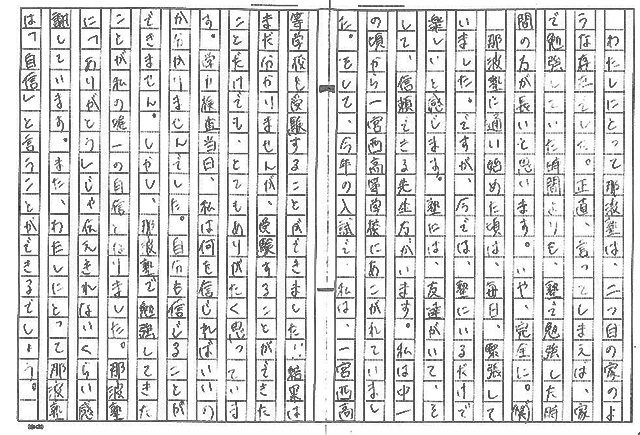 わたしにとって那波塾は、二つ目の家のよ
うな存在でした。正直、言ってしまえば、家
で勉強していた時間よりも、塾で勉強した時
間の方が長いと思います。いや、完全に。僕
那波塾に通い始めた頃は、毎日、緊張して
いました。ですが、今では、塾にいるだけで
楽しいと感じます。塾には、友達がいて、そ
して、信頼できる先生方がいます。私は中一
の頃から一宮西高等学校にあこがれていまし
た。そして、今年の入試で、私は、一宮西高
等学校を受験することができました。結果は
まだ分かりませんが、受験することができた
ことだけでも、とてもありがたく思っていま
す。学力検査当日、私は何を信じればいいの
か分かりませんでした。自分を信じることが
できません。しかし、那波塾で勉強してきた
ことが私の唯一の自信となりました。那波塾
に「ありがとう」じゃ伝えきれないくらい感
謝しています。また、わたしにとって那波塾
は「自信」と言うことができるでしょう。